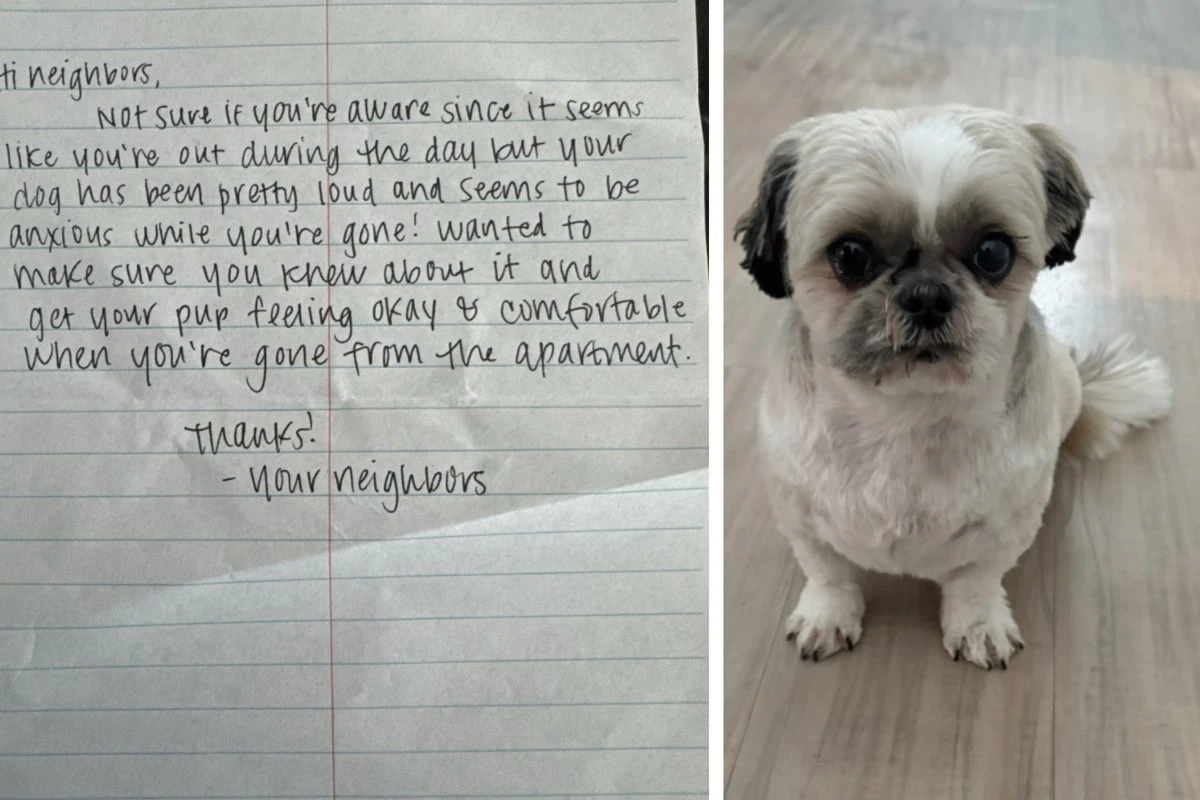 Hi neighbors,
Not sure if you're aware since it seems
like you're out during the day but your
dog has been pretty loud and seems to be
anxious while you're gone! wanted to
make sure you knew about it and
get your pup feeling okay & comfortable
when you're gone from the apartment.
Thanks!
- Your neighbors